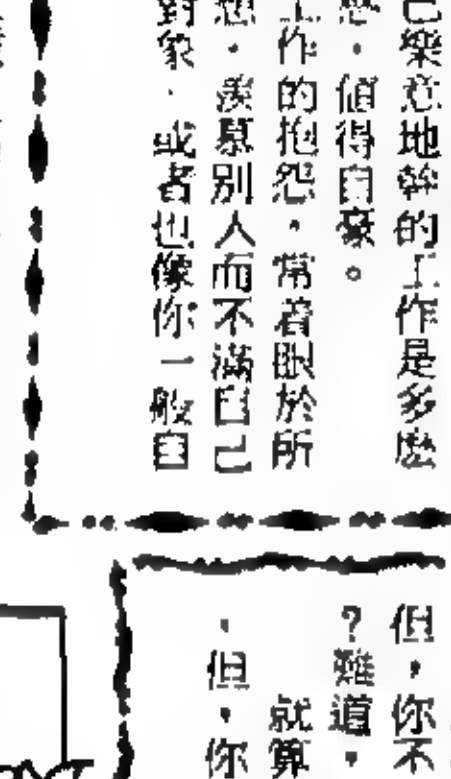 己樂意地幹的工作是多麼
，値得自豪。
工作的抱怨，常着眼於所
想，羨慕別人而不滿自己
對象，或者也像你一般自
但，你不
？難道，
就算
，但，你